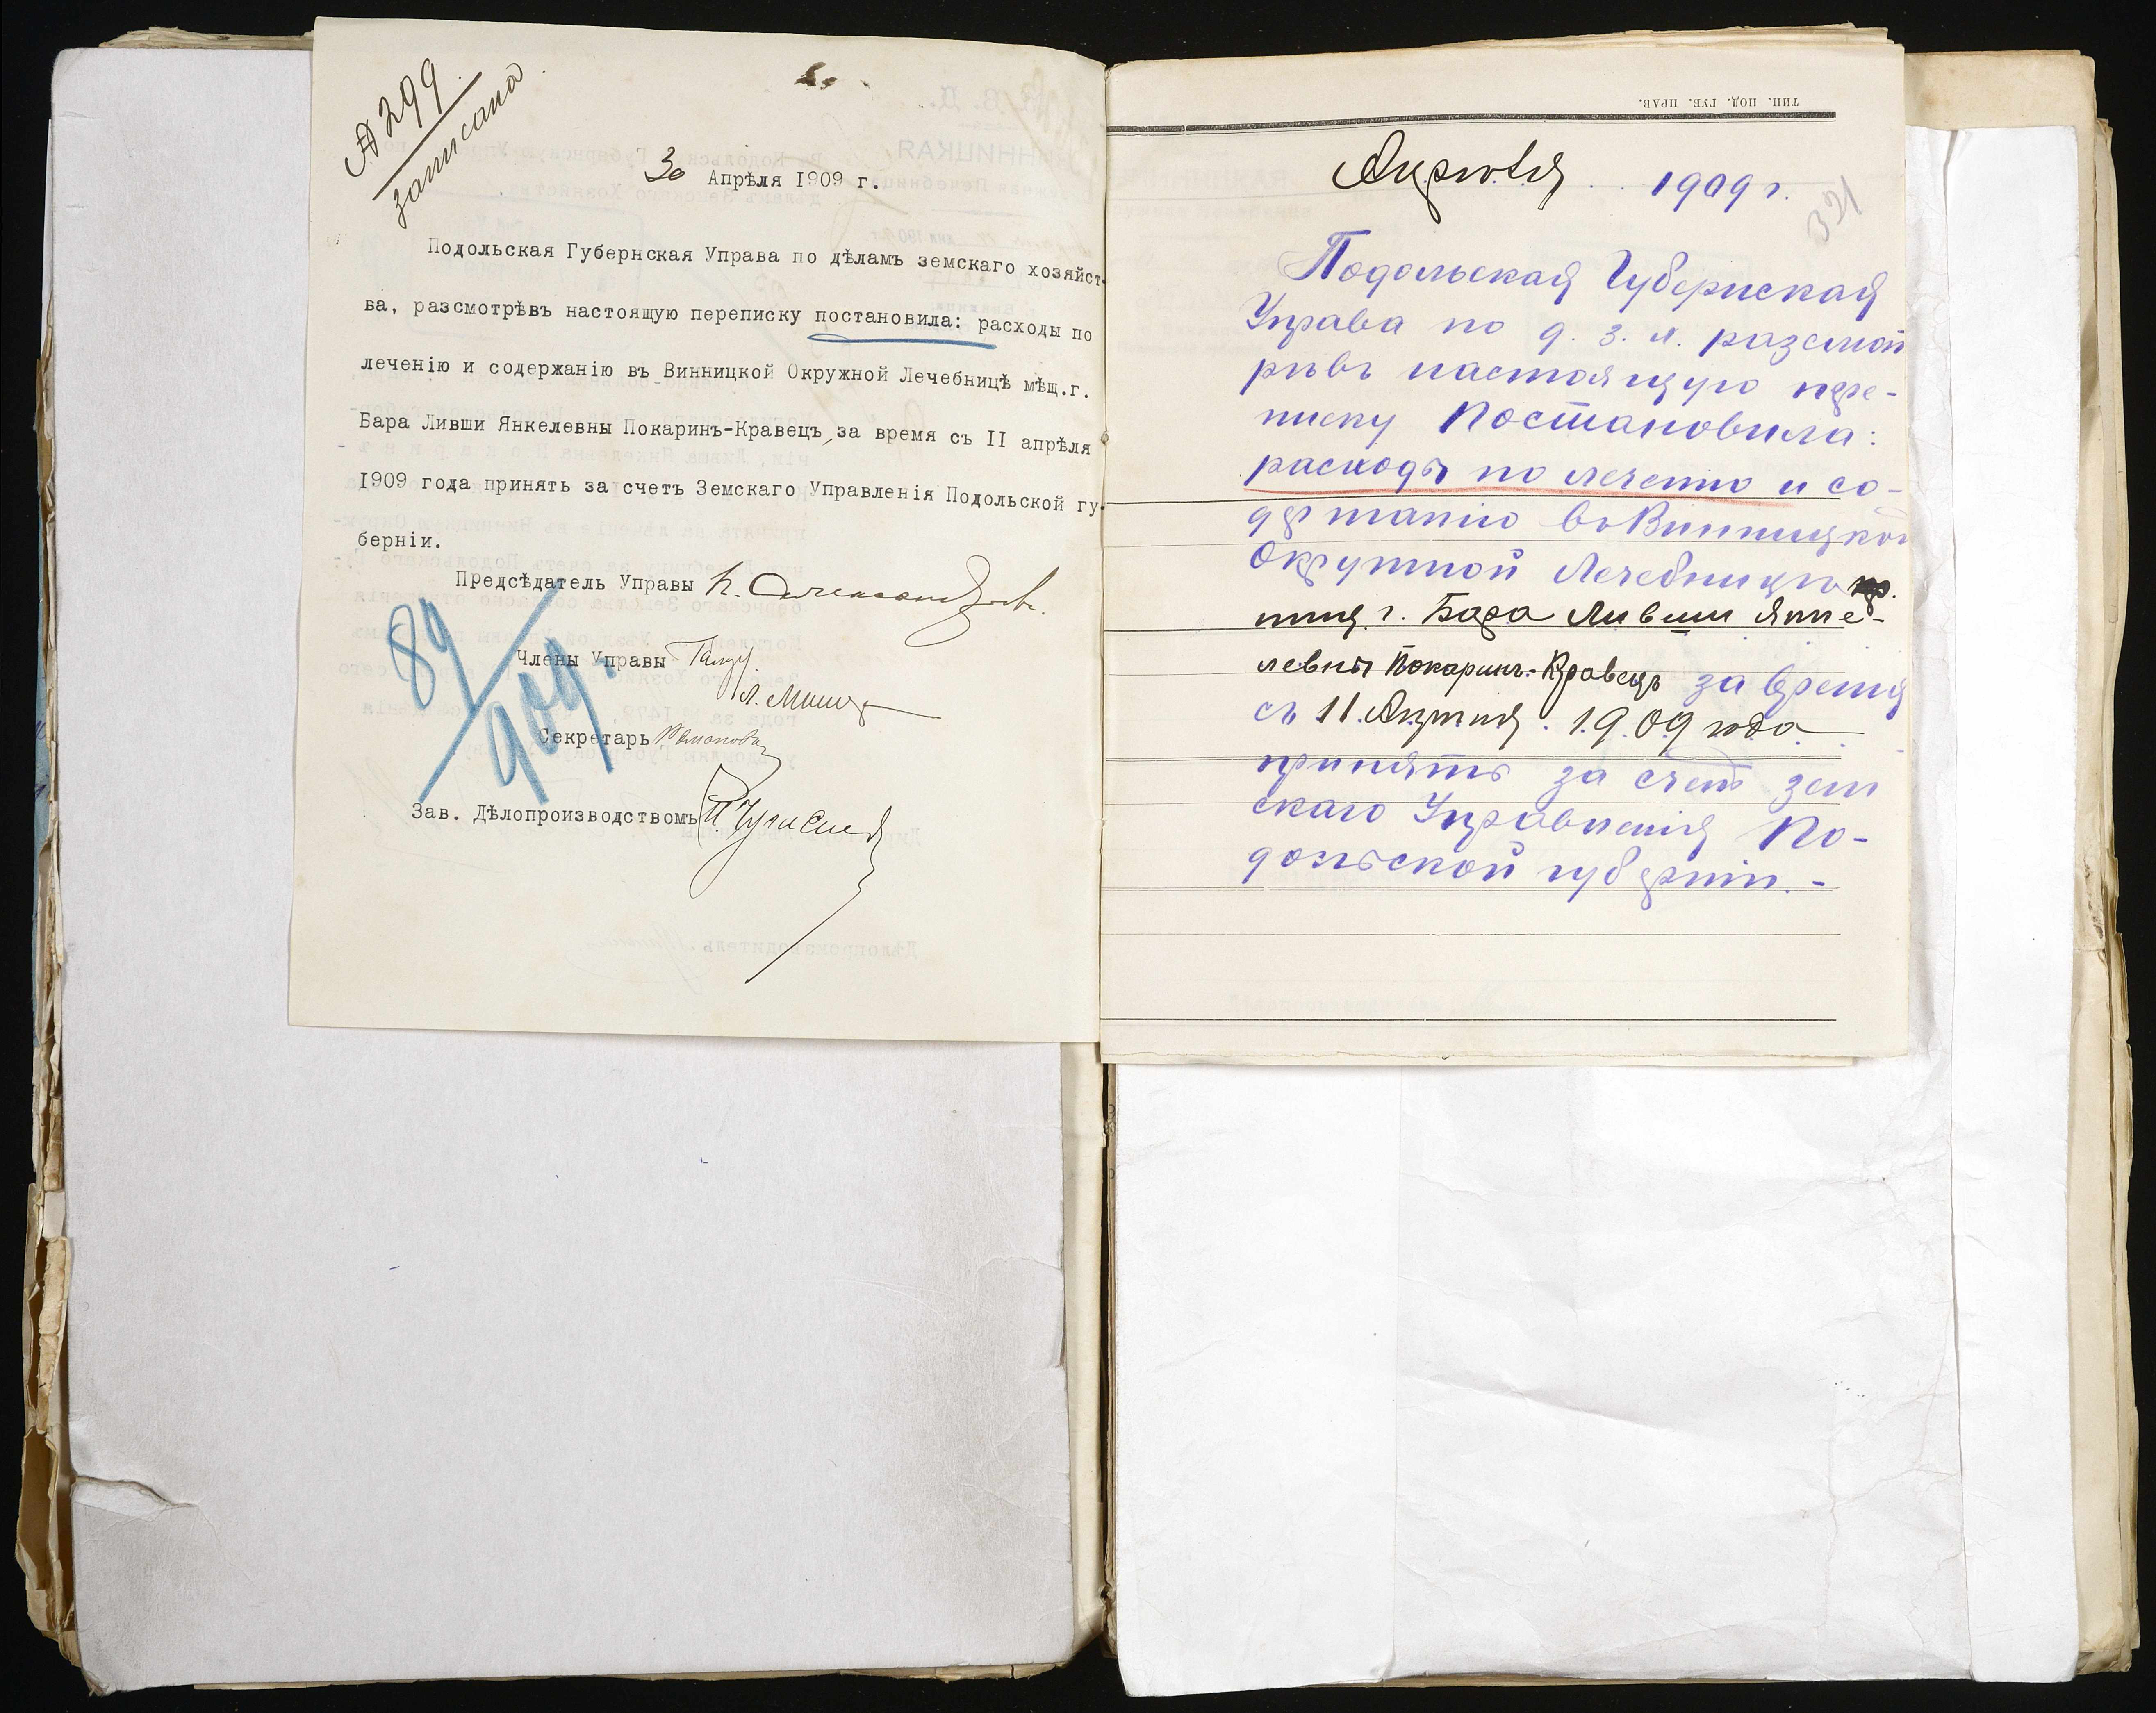 № 299
записано
30 Апрѣля 1909 г.
Подольская Губернская Управа по дѣламъ земскаго хозяйст-
ва, разсмотрѣвъ настоящую переписку постановила: расходы по
леченію и содержанію въ Винницкой Окружной Лечебницѣ мѣщ.г.
Бара Ливши Янкелевны Покаринъ-Кравецъ, за время съ II апрѣля
1909 года принять за счетъ Земскаго Управленія Подольской гу-
берніи.
Предсѣдатель Управы
Члены Управы
Секретарь
Зав. Дѣлопроизводствомъ
89/909.
ТИП. ПОД. ГУБ. ПРАВ.
Апрѣля 1909 г.
321
Подольская Губернская
Управа по д. з. х. разсмот
рѣвъ настоящую пере-
писку Постановила:
расходы по леченію и со-
держанію въ Винницкой
Окружной Лечебницѣ
мѣщ. г. Бара Ливши Янке-
левны Покаринъ-Кравецъ за время
съ 11 Апрѣля 1909 года
принять за счетъ Зем
скаго Управленія По-
дольской губерніи.-